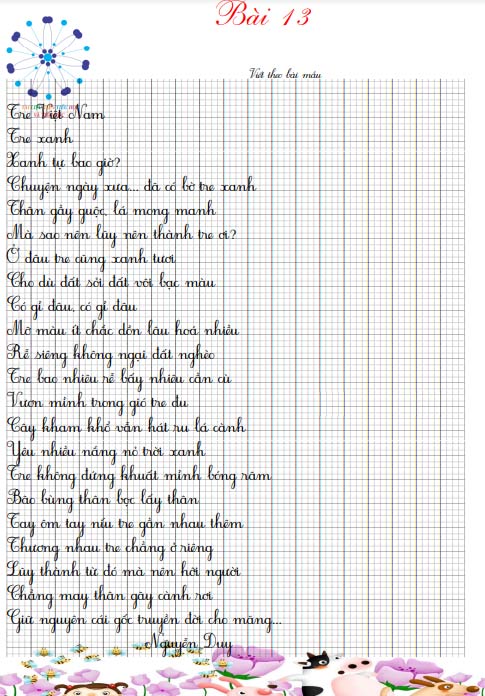 Bài 13
Viết theo bài mẫu
Tre Việt Nam
Tre xanh
Xanh tự bao giờ?
Chuyện ngày xưa... đã có bờ tre xanh
Thân gầy guộc, lá mong manh
Mà sao nên lũy nên thành tre ơi?
Ở đâu tre cũng xanh tươi
Cho dù đất sỏi đất vôi bạc màu
Có gì đâu, có gì đâu
Mỡ màu ít chắc dồn lâu hoá nhiều
Rễ siêng không ngại đất nghèo
Tre bao nhiêu rễ bấy nhiêu cần cù
Vươn mình trong gió tre đu
Cây kham khổ vẫn hát ru lá cành
Yêu nhiều nắng nỏ trời xanh
Tre không đứng khuất mình bóng râm
Bão bùng thân bọc lấy thân
Tay ôm tay níu tre gần nhau thêm
Thương nhau tre chẳng ở riêng
Lũy thành từ đó mà nên hỡi người
Chẳng may thân gãy cành rơi
Giữ nguyên cái gốc truyền đời cho măng...
Nguyễn Duy